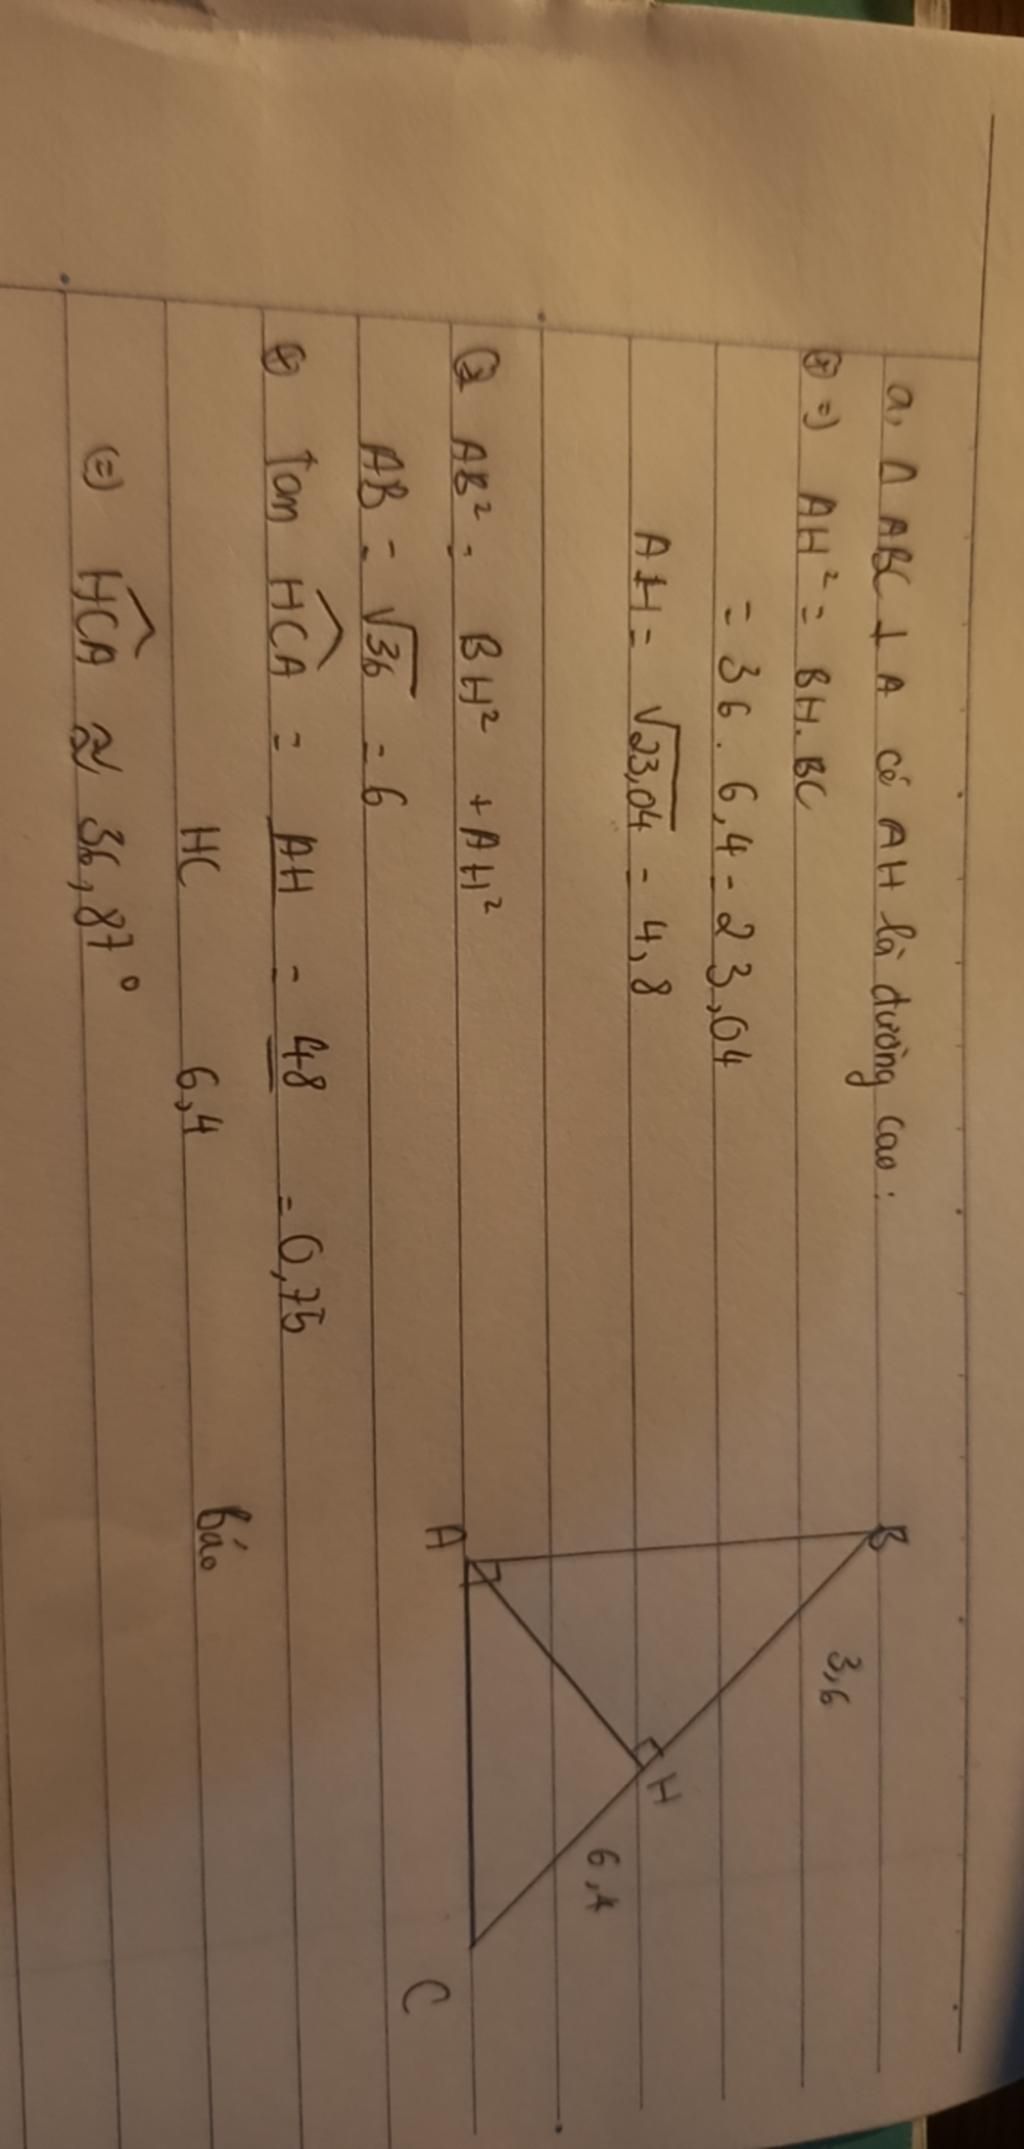 a, Δ ABC ⊥ A có AH là đường cao :
⊕ =) AH² = BH. BC
= 36 . 6,4 = 23,04
AH = √23,04 = 4,8
⊕ AB² = BH² + AH²
AB = √36 = 6
⊕ Tan HCA = AH = 48 = 0,75
HC 6,4
(=) HCA ≈ 36,87°
Báo
B
3,6
H
6,4
A
C